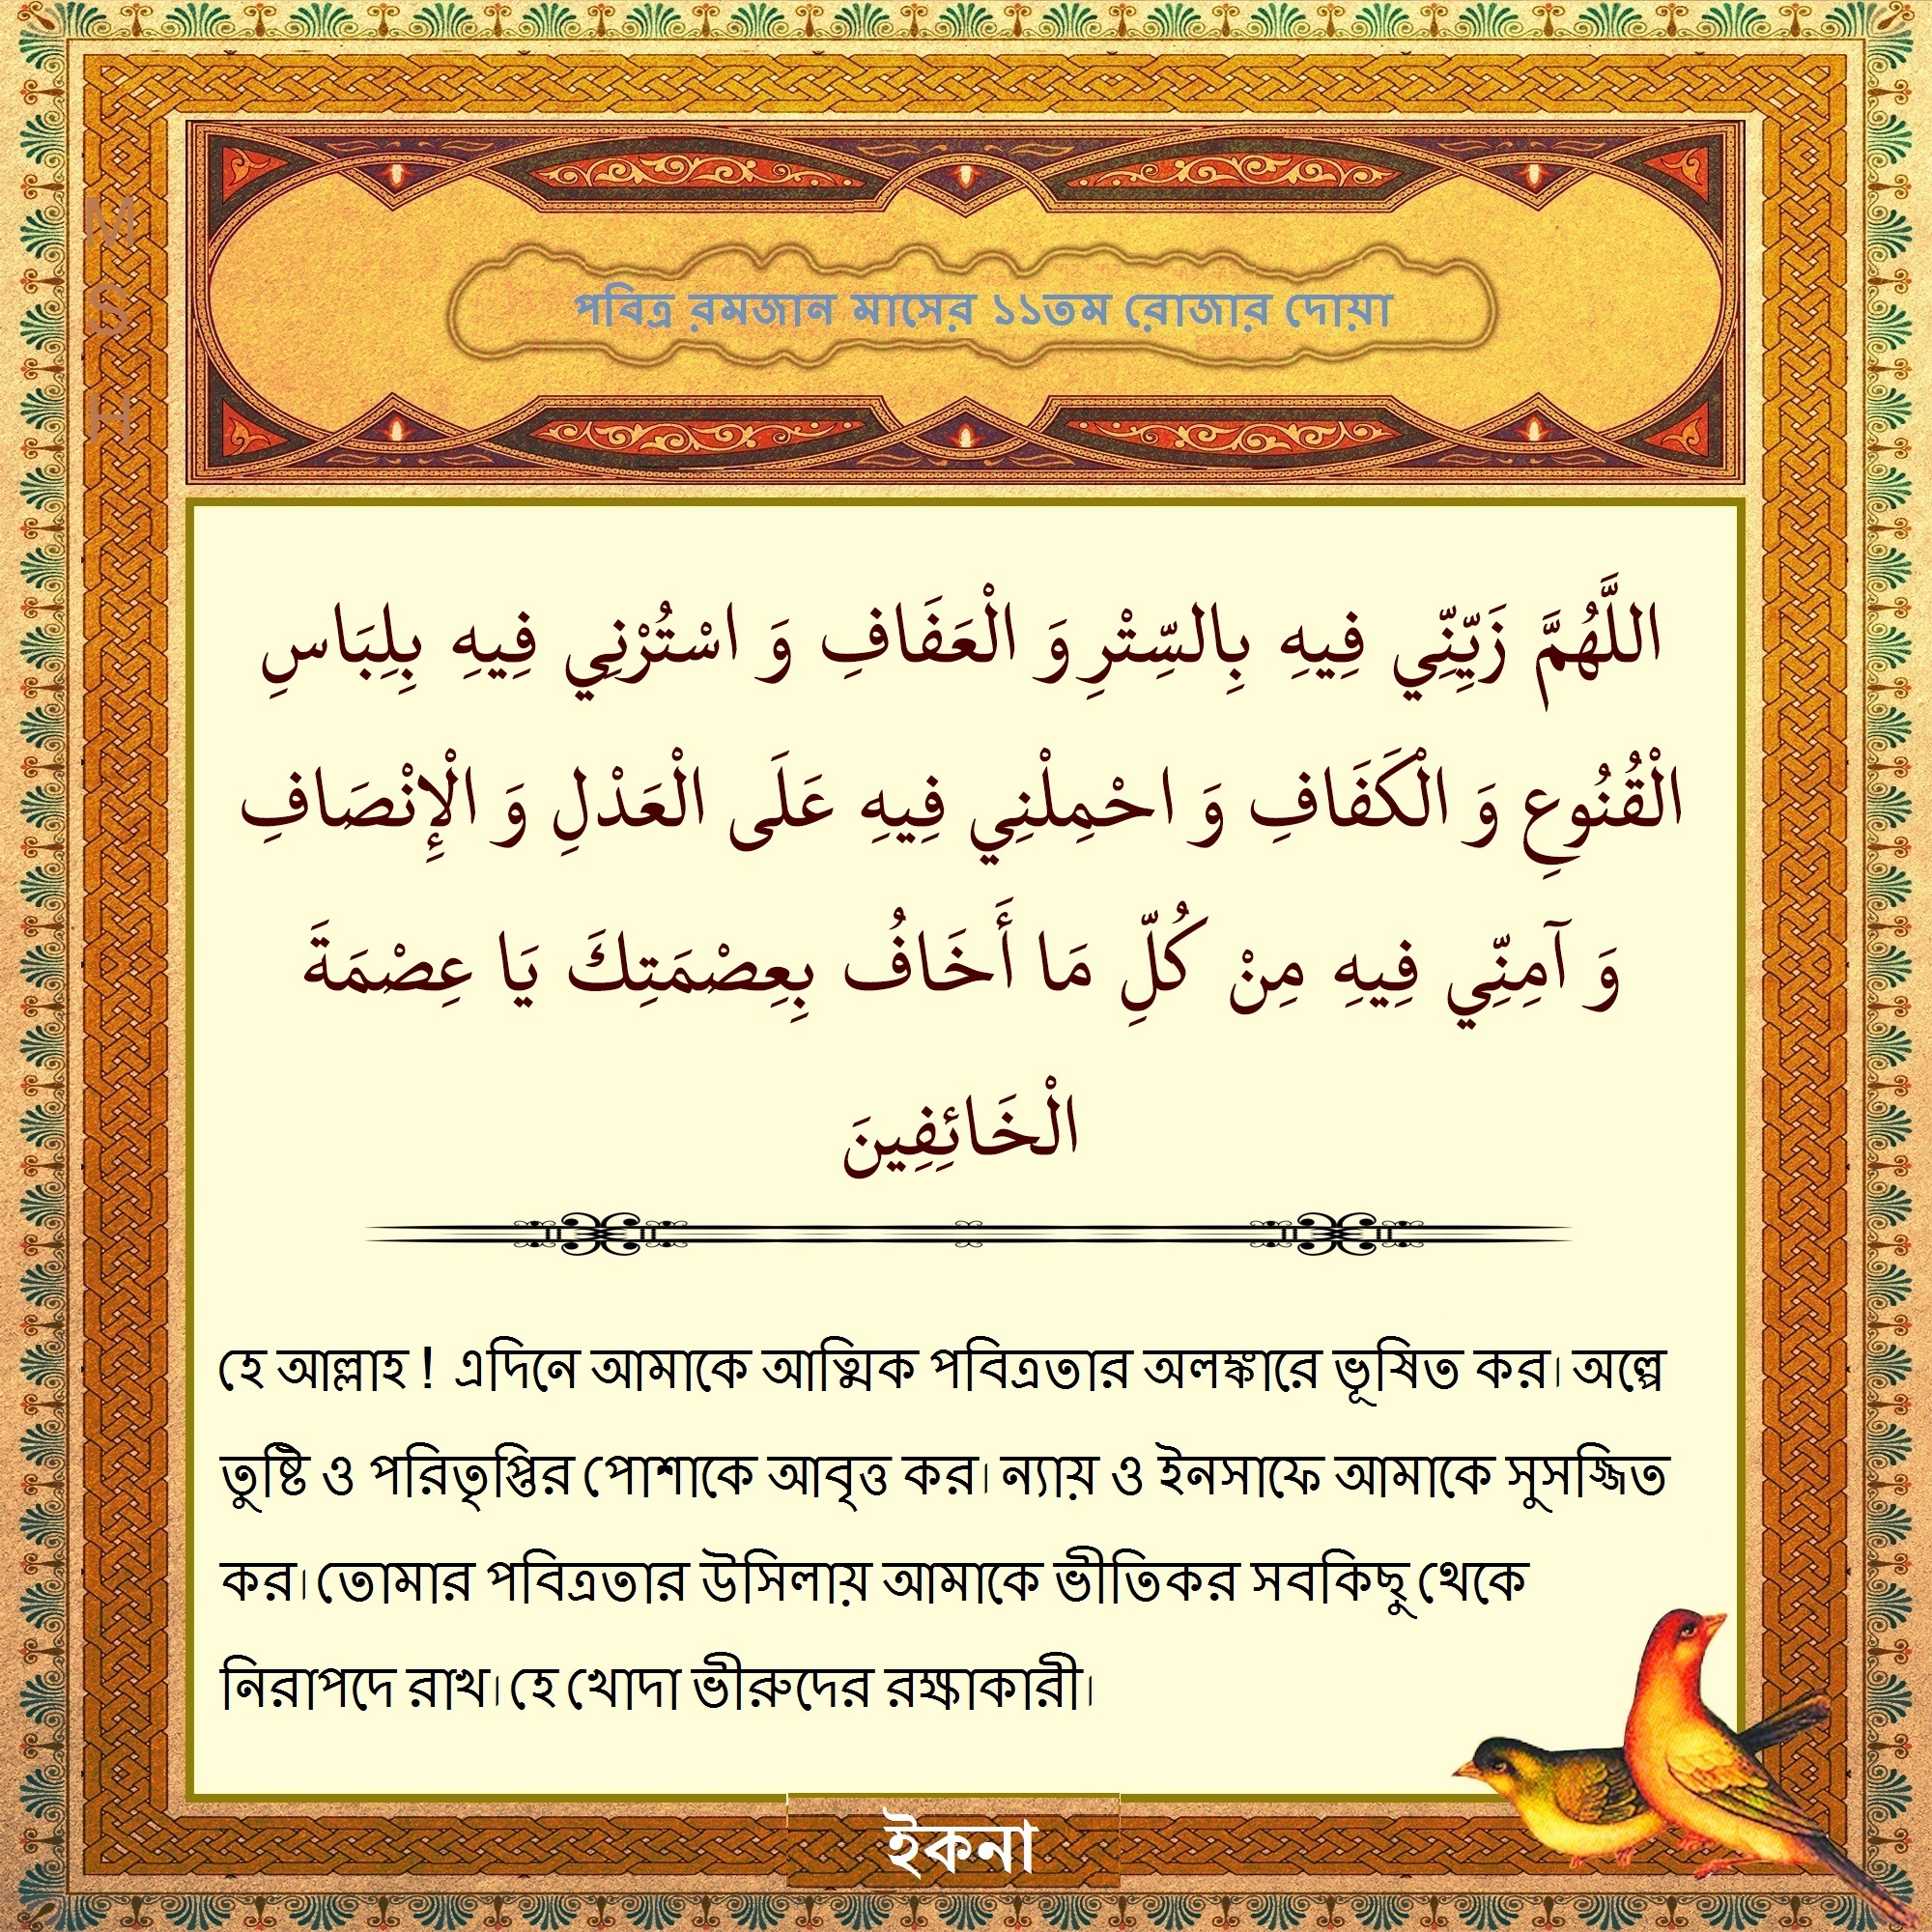 পবিত্র রমজান মাসের ১১তম রোজার দোয়া
M
S
H
اللَّهُمَّ زَيِّنِّي فِيهِ بِالسِّتْرِ وَ الْعَفَافِ وَ اسْتُرْنِي فِيهِ بِلِبَاسِ
الْقُنُوعِ وَ الْكَفَافِ وَ احْمِلْنِي فِيهِ عَلَى الْعَدْلِ وَ الْإِنْصَافِ
وَ آمِنِّي فِيهِ مِنْ كُلِّ مَا أَخَافُ بِعِصْمَتِكَ يَا عِصْمَةَ
الْخَائِفِينَ
হে আল্লাহ ! এদিনে আমাকে আত্মিক পবিত্রতার অলঙ্কারে ভূষিত কর। অল্পে
তুষ্টি ও পরিতৃপ্তির পোশাকে আবৃত্ত কর। ন্যায় ও ইনসাফে আমাকে সুসজ্জিত
কর। তোমার পবিত্রতার উসিলায় আমাকে ভীতিকর সবকিছু থেকে
নিরাপদে রাখ। হে খোদা ভীরুদের রক্ষাকারী।
ইকনা